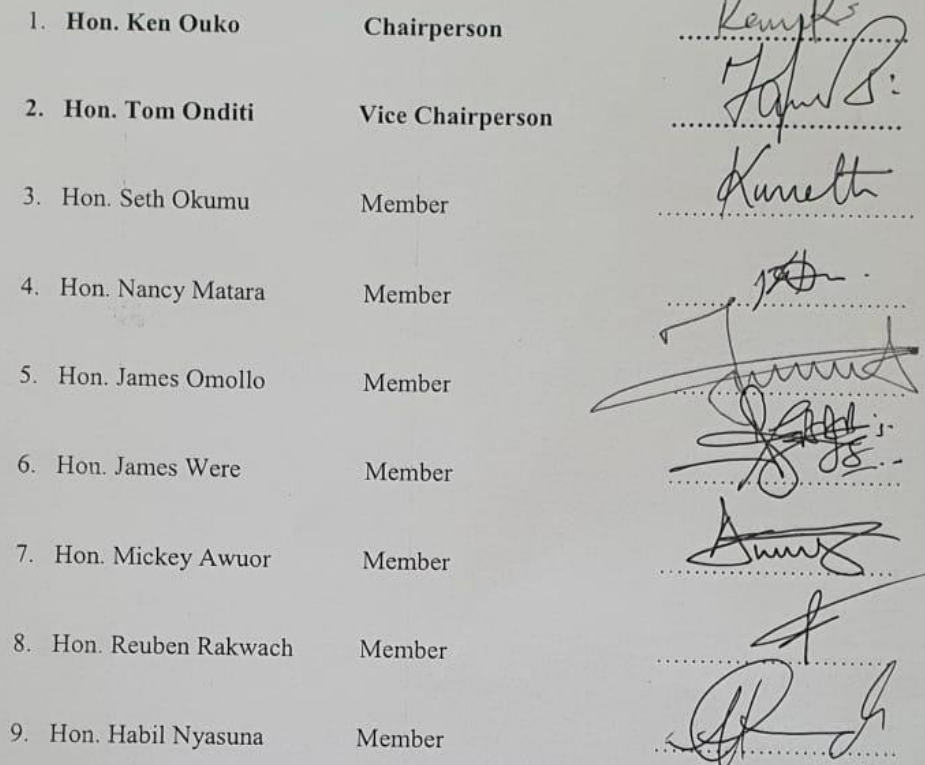 1. Hon. Ken Ouko Chairperson
2. Hon. Tom Onditi Vice Chairperson
3. Hon. Seth Okumu Member
4. Hon. Nancy Matara Member
5. Hon. James Omollo Member
6. Hon. James Were Member
7. Hon. Mickey Awuor Member
8. Hon. Reuben Rakwach Member
9. Hon. Habil Nyasuna Member